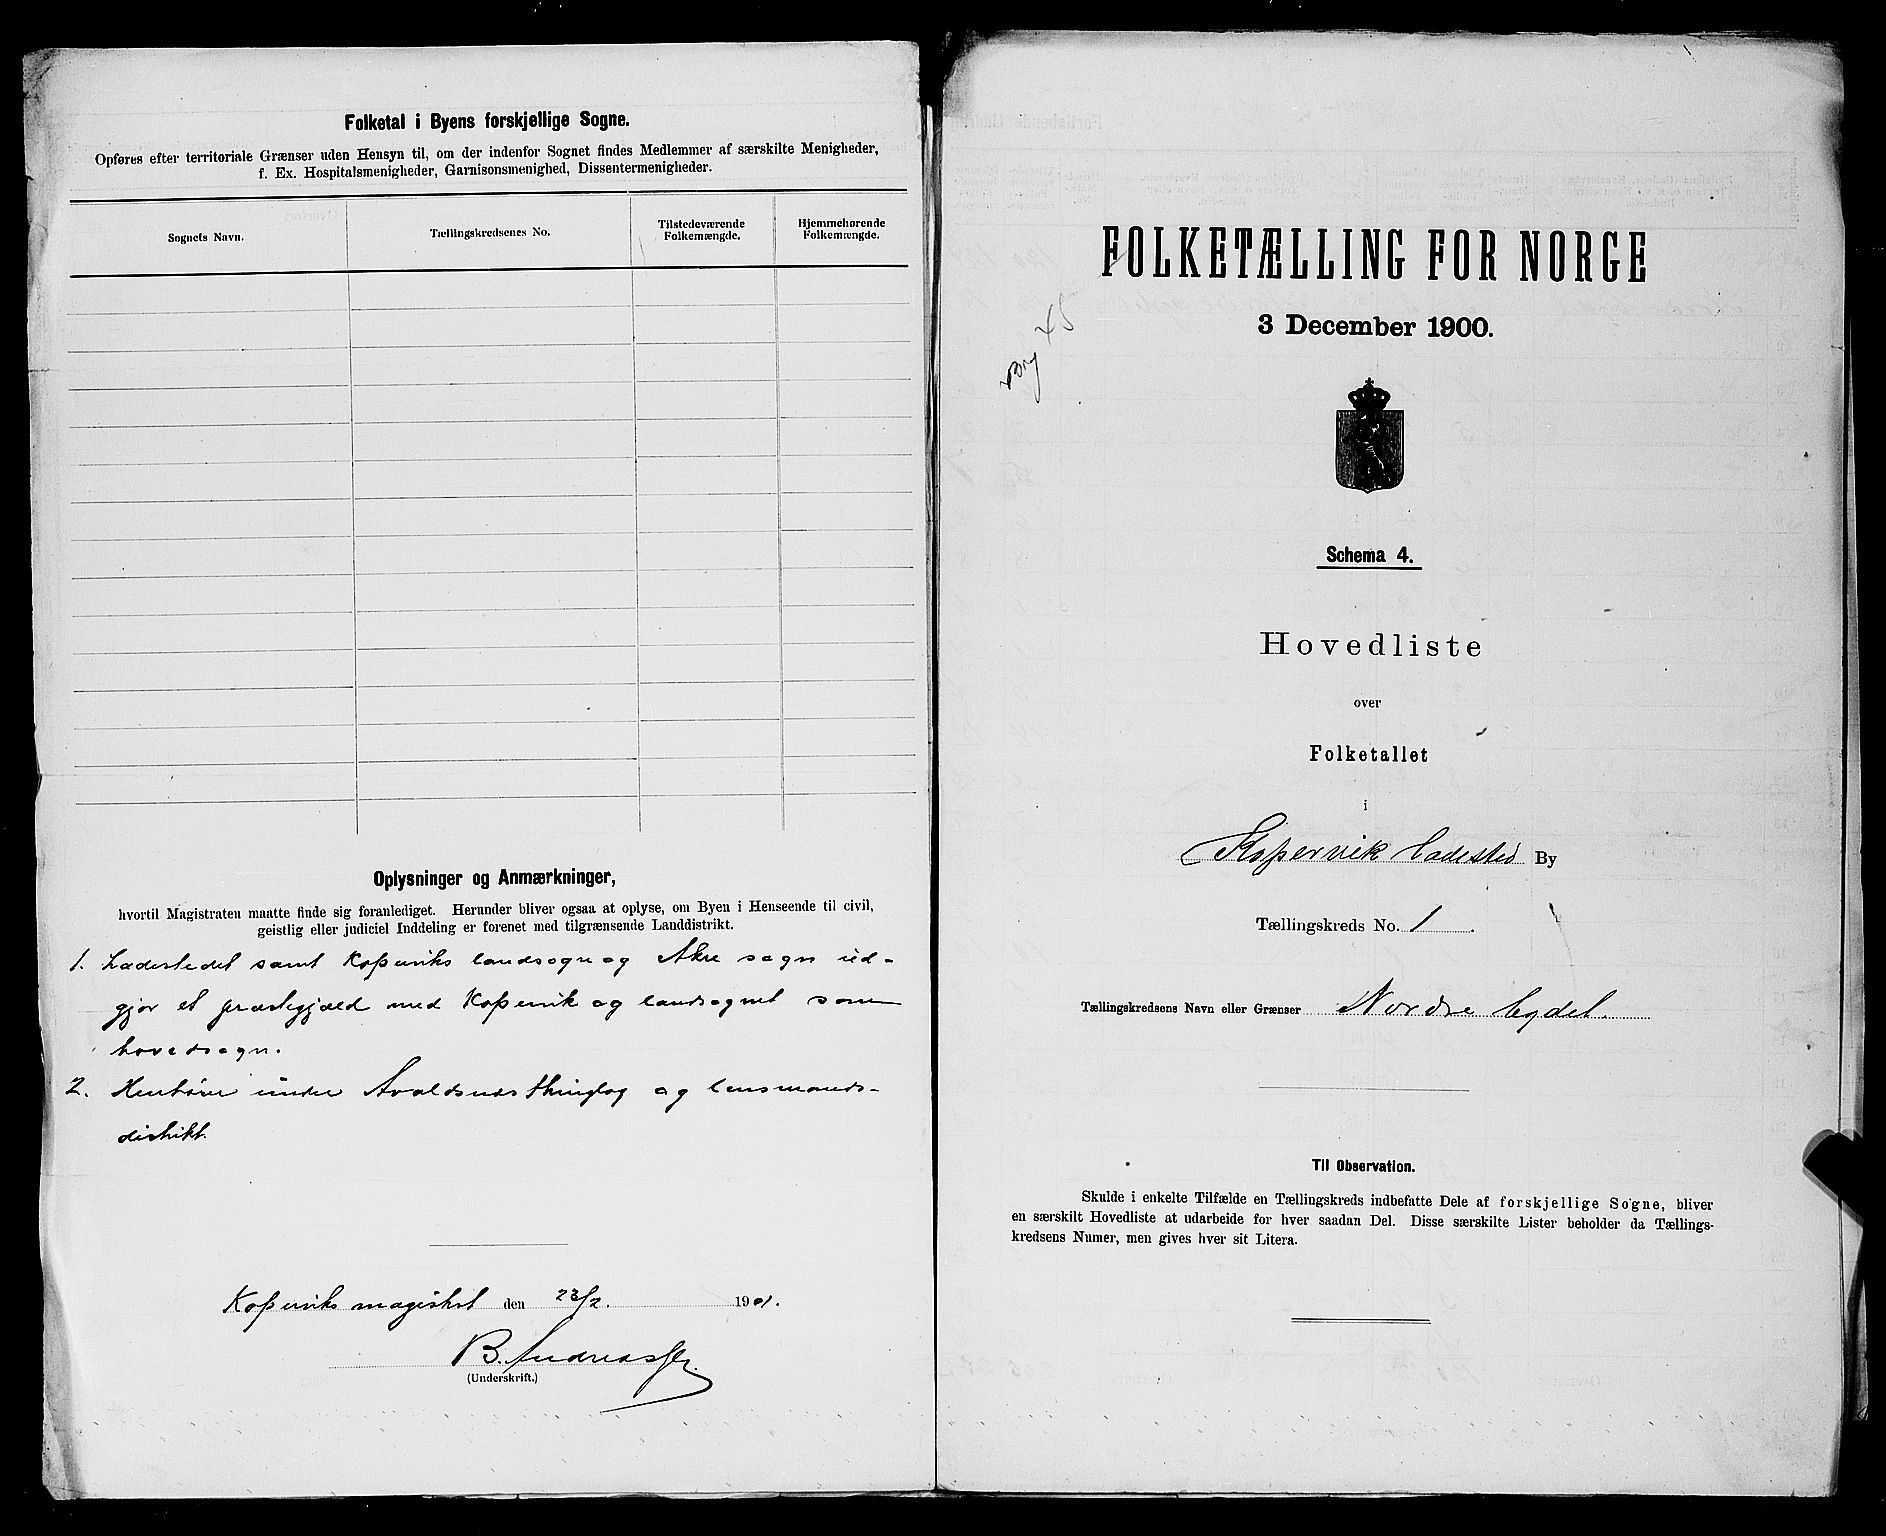 Folketal i Byens forskjellige Sogne.
Opføres efter territoriale Grænser uden Hensyn til, om der indenfor Sognet findes Medlemmer af særskilte Menigheder,
f. Ex. Hospitalsmenigheder, Garnisonsmenighed, Dissentermenigheder.
Sognets Navn.
Tællingskredsenes No.
Tilstedeværende
Folkemængde.
Hjemmehørende
Folkemængde.
Oplysninger og Anmærkninger,
hvortil Magistraten maatte finde sig foranlediget. Herunder bliver ogsaa at oplyse, om Byen i Henseende til civil,
geistlig eller judiciel Inddeling er forenet med tilgrænsende Landdistrikt.
1. Ladestedet samt Koperviks landsogn og Akre sogn ud-
gjør et præstegjæld med Kopervik og landsognet som
hovedsogn.
2. Henhører under Avaldsnes thinglag og lensmands-
distrikt.
Koperviks magistrat den 23/2. 1901.
B. Andreassen
(Underskrift.)
FOLKETÆLLING FOR NORGE
3 December 1900.
By 45
Schema 4.
Hovedliste
over
Folketallet
i
Kopervik Ladested By
Tællingskreds No. 1.
Tællingskredsens Navn eller Grænser Nordre bydel.
Til Observation.
Skulde i enkelte Tilfælde en Tællingskreds indbefatte Dele af forskjellige Sogne, bliver
en særskilt Hovedliste at udarbeide for hver saadan Del. Disse særskilte Lister beholder da Tællings-
kredsens Numer, men gives hver sit Litera.